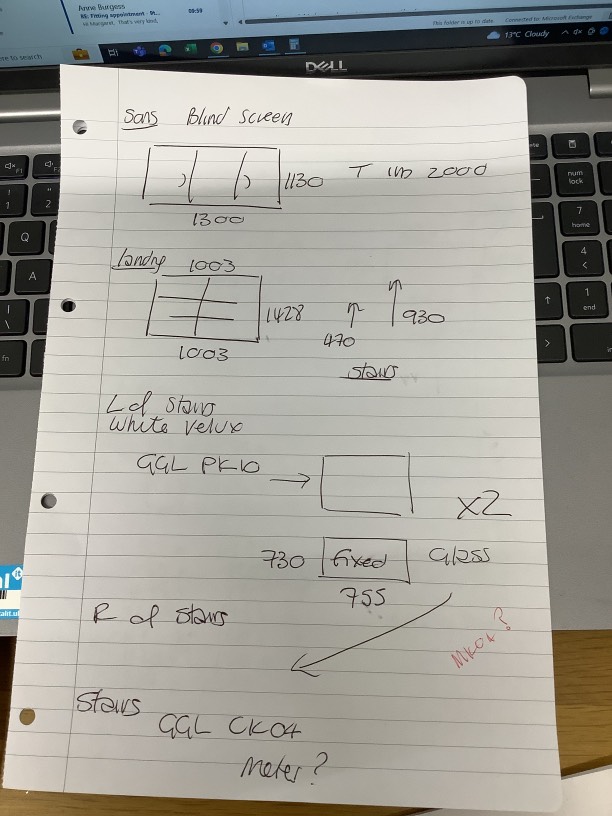 Anne Burgess
RE: Fitting appointment - St...
Hi Margaret, That's very kind,
09:59
This folder is up to date.
Connected to: Microsoft Exchange
re to search
13°C Cloudy
DELL
Sans Blind Screen
1130
T in 2000
1300
landry
1003
1428
470
930
1003
stairs
L of Stairs
White Velux
GGL PK10
x2
730
fixed
Glass
755
R of Stairs
MK04?
Stairs
GGL CK04
Meter?
F1
1
2
Q
A
fn
num
lock
7
home
4
1
end